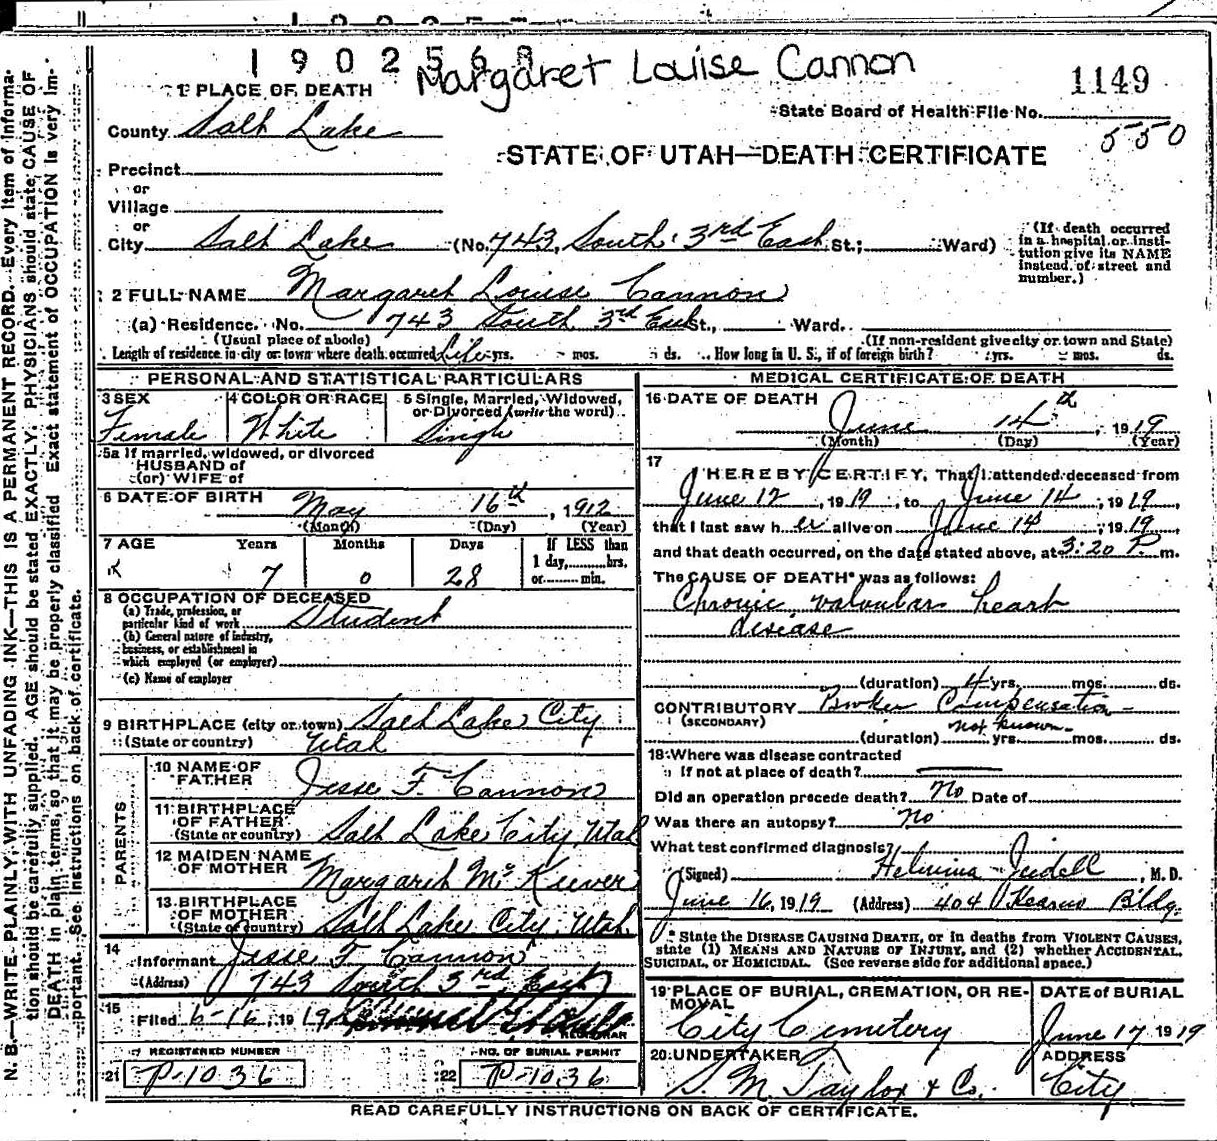 1902568
Margaret Louise Cannon
1149
1 PLACE OF DEATH
State Board of Health File No.
550
County Salt Lake
STATE OF UTAH—DEATH CERTIFICATE
Precinct
or
Village
or
City Salt Lake (No. 743, South 3rd East St.; Ward)
(If death occurred in a hospital or institution give its NAME instead of street and number.)
2 FULL NAME Margaret Louise Cannon
(a) Residence. No. 743 South 3rd East St., Ward.
(Usual place of abode) (If non-resident give city or town and State)
Length of residence in city or town where death occurred Life yrs. mos. ds. How long in U. S., if of foreign birth? yrs. mos. ds.
PERSONAL AND STATISTICAL PARTICULARS
3 SEX
Female
4 COLOR OR RACE
White
5 Single, Married, Widowed, or Divorced (write the word)
Single
5a If married, widowed, or divorced
HUSBAND of
(or) WIFE of
6 DATE OF BIRTH May 16th, 1912
(Month) (Day) (Year)
7 AGE Years Months Days If LESS than
1 day, hrs.
or min.
7 0 28
8 OCCUPATION OF DECEASED
(a) Trade, profession, or particular kind of work Student
(b) General nature of industry, business, or establishment in which employed (or employer)
(c) Name of employer
9 BIRTHPLACE (city or town) Salt Lake City
(State or country) Utah
PARENTS
10 NAME OF FATHER Jesse F. Cannon
11 BIRTHPLACE OF FATHER (State or country) Salt Lake City, Utah
12 MAIDEN NAME OF MOTHER Margaret Mc Keever
13 BIRTHPLACE OF MOTHER (State or country) Salt Lake City, Utah.
14 Informant Jesse F. Cannon
(Address) 743 South 3rd East
15 Filed 6-16, 1919
REGISTRAR
REGISTERED NUMBER
21 P-1036
NO. OF BURIAL PERMIT
22 P-1036
MEDICAL CERTIFICATE OF DEATH
16 DATE OF DEATH
June 14th, 1919
(Month) (Day) (Year)
17
I HEREBY CERTIFY, That I attended deceased from
June 12, 1919, to June 14, 1919,
that I last saw her alive on June 14, 1919
and that death occurred, on the date stated above, at 3:20 P. m.
The CAUSE OF DEATH* was as follows:
Chronic valvular heart
disease
(duration) 4 yrs. mos. ds.
CONTRIBUTORY Broken Compensation
(SECONDARY) not known
(duration) yrs. mos. ds.
18 Where was disease contracted
if not at place of death?
Did an operation precede death? No Date of
Was there an autopsy? No
What test confirmed diagnosis?
(Signed) Helmina Jeidell, M. D.
June 16, 1919 (Address) 404 Kearns Bldg.
* State the DISEASE CAUSING DEATH, or in deaths from VIOLENT CAUSES,
state (1) MEANS AND NATURE OF INJURY, and (2) whether ACCIDENTAL,
SUICIDAL, or HOMICIDAL. (See reverse side for additional space.)
19 PLACE OF BURIAL, CREMATION, OR REMOVAL
City Cemetery
DATE of BURIAL
June 17 1919
20 UNDERTAKER
S. M. Taylor & Co.
ADDRESS
City
READ CAREFULLY INSTRUCTIONS ON BACK OF CERTIFICATE.
N. B.—WRITE PLAINLY, WITH UNFADING INK—THIS IS A PERMANENT RECORD. Every item of information should be carefully supplied. AGE should be stated EXACTLY. PHYSICIANS should state CAUSE OF DEATH in plain terms, so that it may be properly classified. Exact statement of OCCUPATION is very important. See instructions on back of certificate.